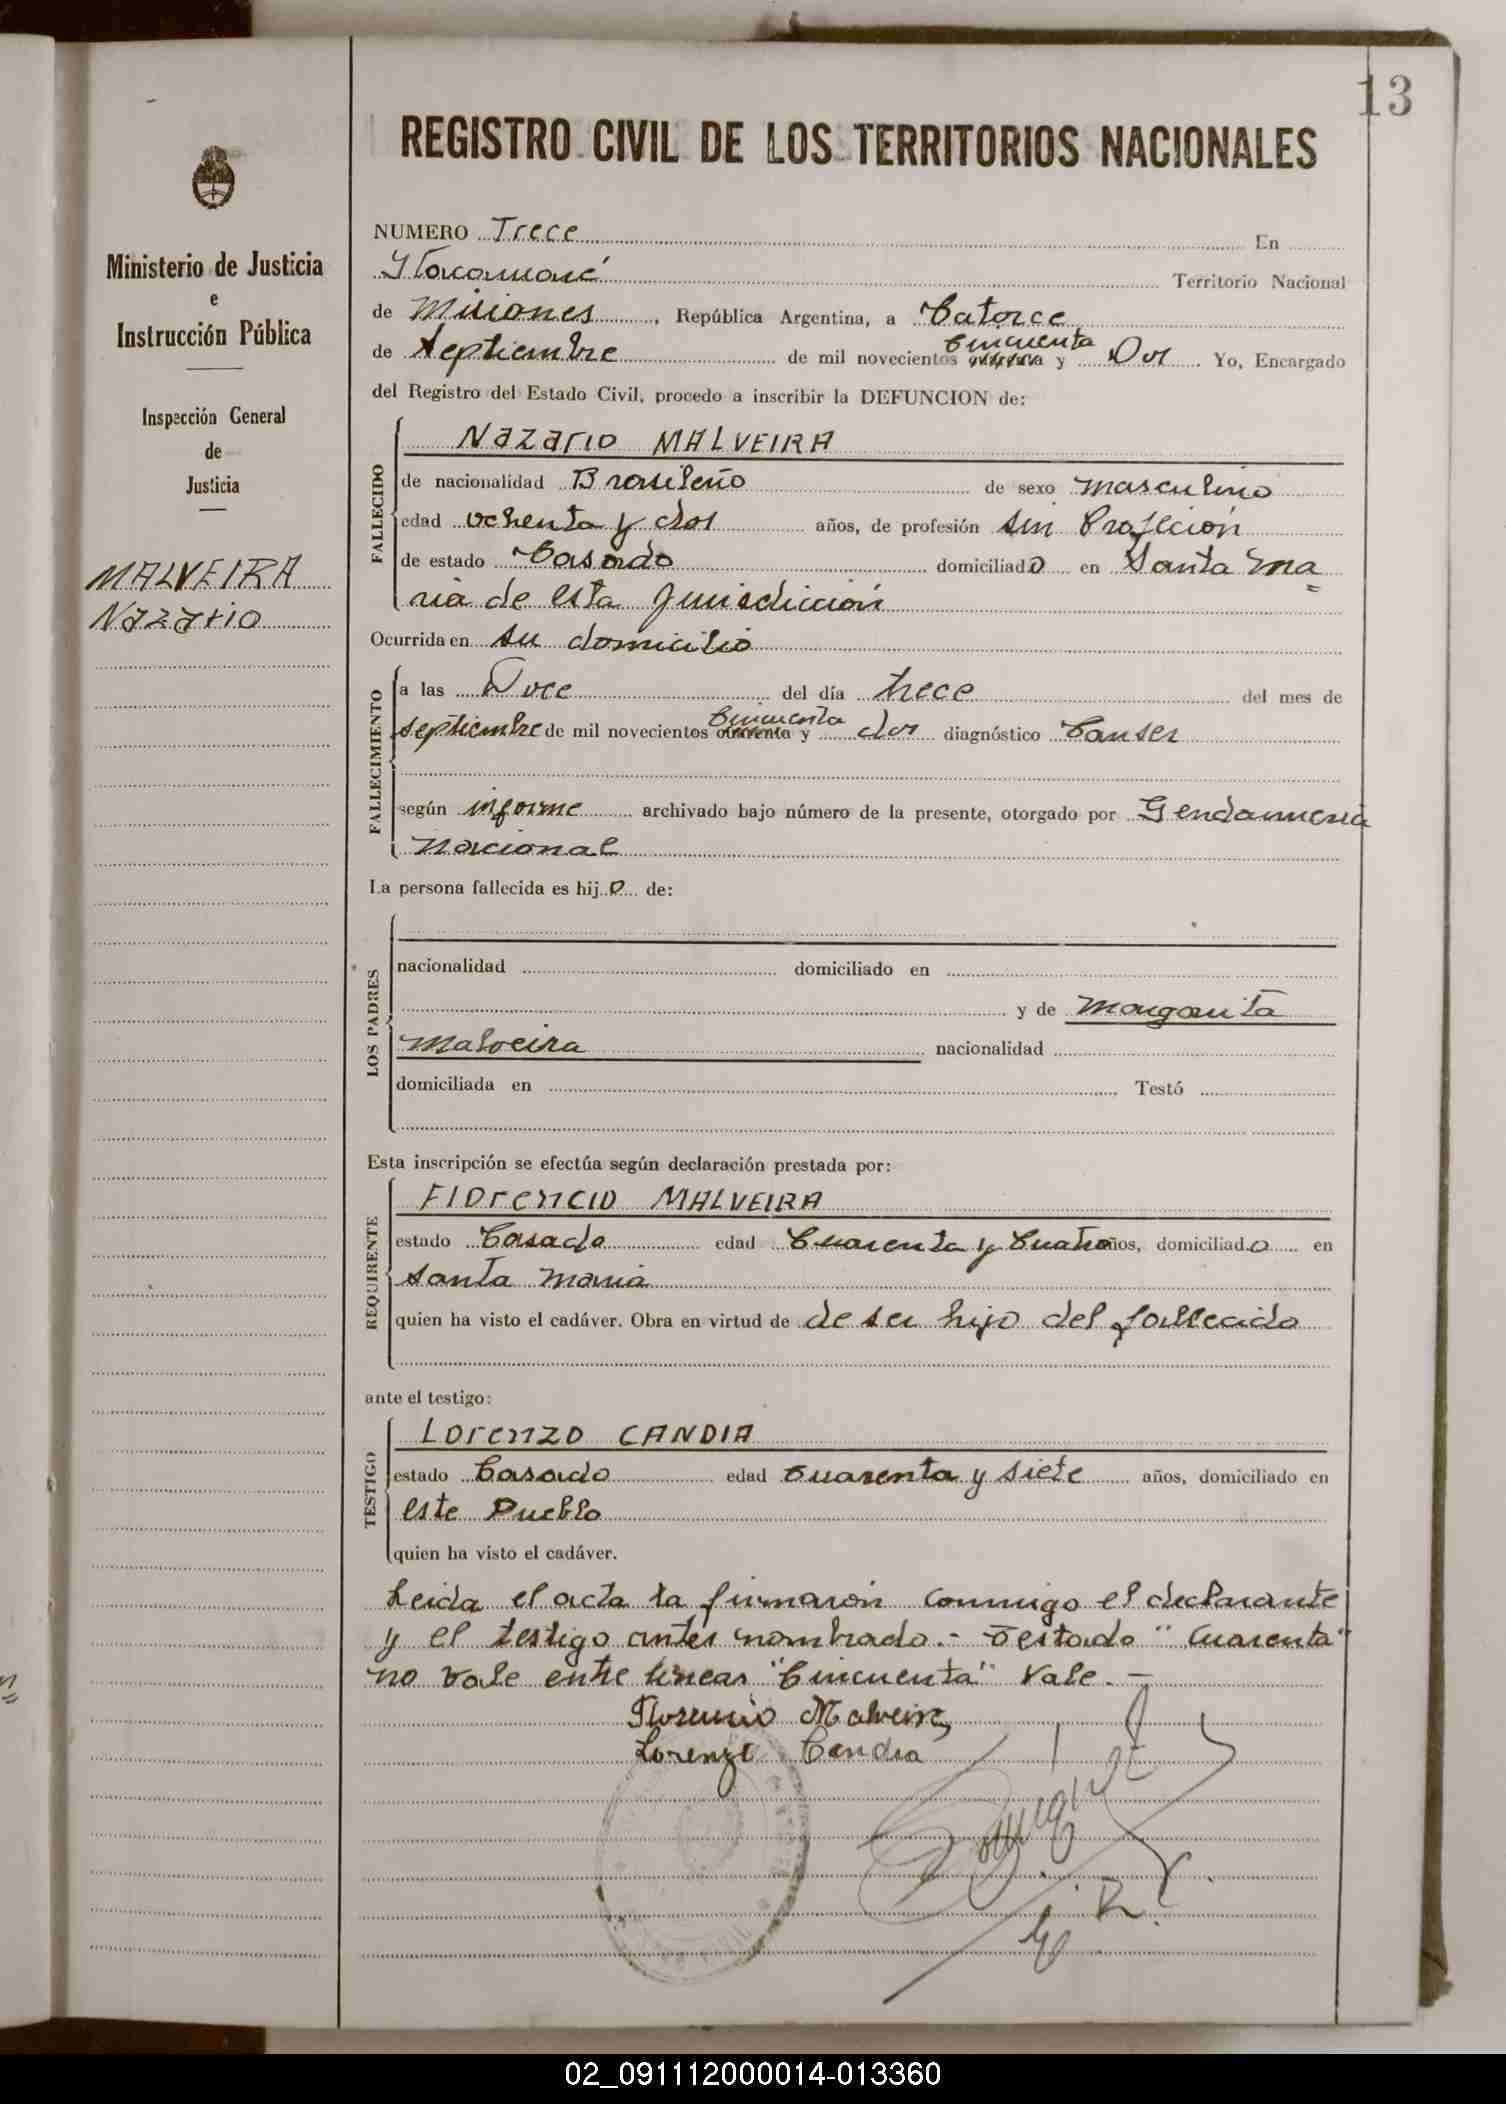 13
REGISTRO CIVIL DE LOS TERRITORIOS NACIONALES
Ministerio de Justicia
e
Instrucción Pública
Inspección General
de
Justicia
MALVEIRA
Nazario
NUMERO Trece En
Itacaruaré Territorio Nacional
de Misiones, República Argentina, a Catorce
de Septiembre de mil novecientos cuarenta Cincuenta y Dos Yo, Encargado
del Registro del Estado Civil, procedo a inscribir la DEFUNCION de:
FALLECIDO
Nazario MALVEIRA
de nacionalidad Brasileño de sexo masculino
edad ochenta y dos años, de profesión sin Profeción
de estado Casado domiciliado en Santa Ma=
ria de esta Jurisdicción
Ocurrida en su domicilio
FALLECIMIENTO
a las Doce del día trece del mes de
septiembre de mil novecientos cuarenta Cincuenta y dos diagnóstico Canser
según informe archivado bajo número de la presente, otorgado por Gendarmeria
Nacional
La persona fallecida es hijo de:
LOS PADRES
nacionalidad domiciliado en
y de Margarita
Malveira nacionalidad
domiciliada en Testó
Esta inscripción se efectúa según declaración prestada por:
REQUIRENTE
Florencio MALVEIRA
estado Casado edad Cuarenta y Cuatro años, domiciliado en
Santa Maria
quien ha visto el cadáver. Obra en virtud de de ser hijo del fallecido
ante el testigo:
TESTIGO
Lorenzo CANDIA
estado Casado edad cuarenta y siete años, domiciliado en
este Pueblo
quien ha visto el cadáver.
Leida el acta la firmarón conmigo el declarante
y el testigo antes nombrado.- Testado "Cuarenta"
no vale entre lineas "Cincuenta" Vale.-
Florencio Malveira
Lorenzo Candia
E. R. C.
02_091112000014-013360